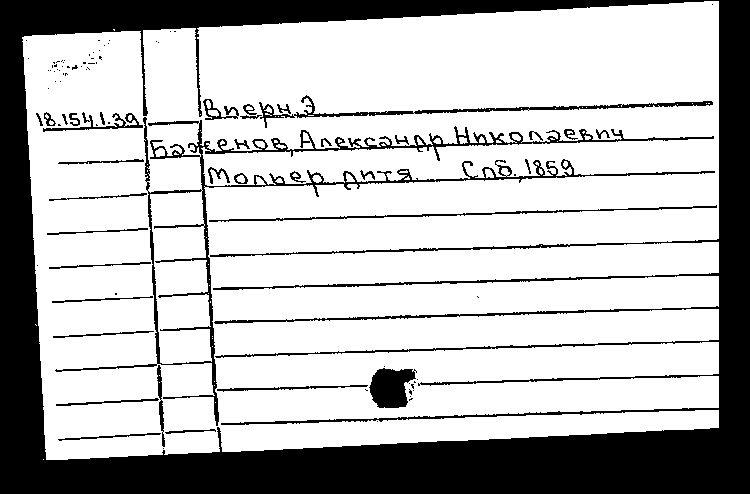 Вперн. Э
18.154.1.39
Баженов, Александр Николаевич
Мольер дитя Спб, 1859